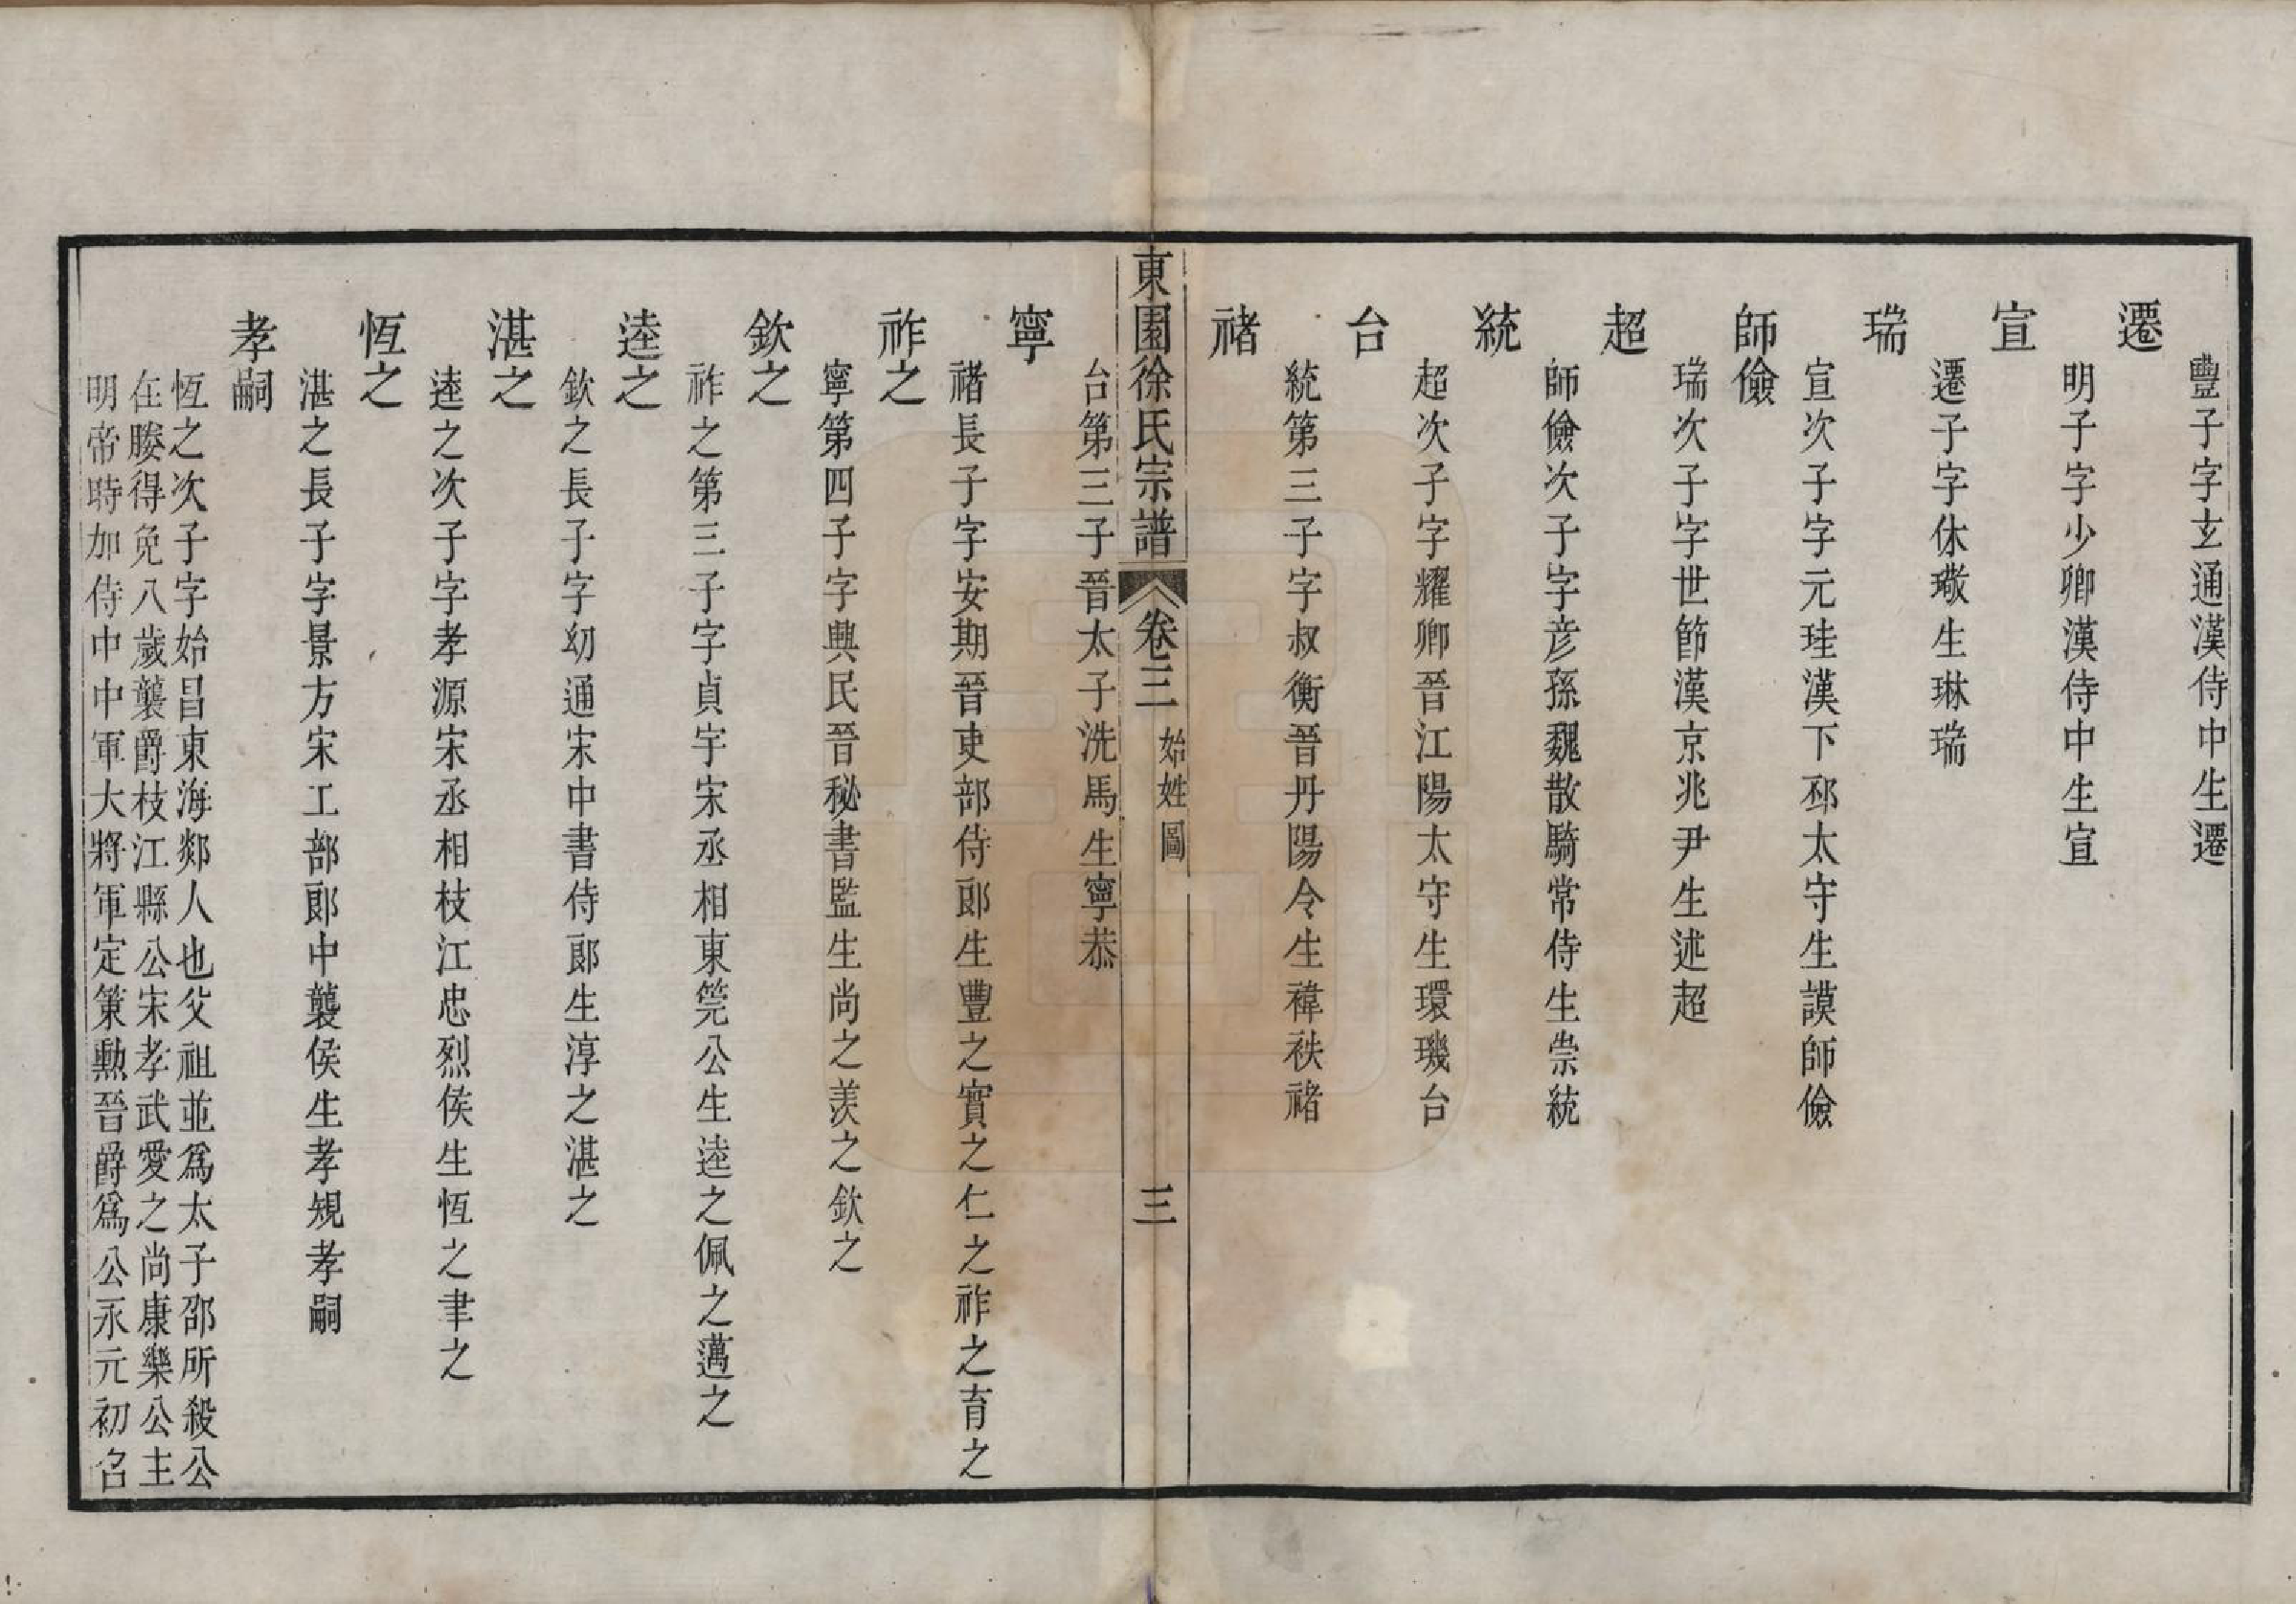 豐子字玄通漢侍中生遷
遷
明子字少卿漢侍中生宣
宣
遷子字休璥生琳瑞
瑞
宣次子字元珪漢下邳太守生謨師儉
師儉
瑞次子字世節漢京兆尹生述超
超
師儉次子字彥孫魏散騎常侍生崇統
統
超次子字耀卿晉江陽太守生環璣台
台
統第三子字叔衡晉丹陽令生褘秩禇
禇
東園徐氏宗譜 卷三 始姓圖 三
台第三子晉太子洗馬生寧恭
寧
禇長子字安期晉吏部侍郎生豐之實之仁之祚之育之
祚之
寧第四子字興民晉秘書監生尚之羡之欽之
欽之
祚之第三子字貞宇宋丞相東筦公生逵之佩之邁之
逵之
欽之長子字幼通宋中書侍郎生淳之湛之
湛之
逵之次子字孝源宋丞相枝江忠烈侯生恆之聿之
恆之
湛之長子字景方宋工部郎中襲侯生孝規孝嗣
孝嗣
恆之次子字始昌東海郯人也父祖並爲太子卲所殺公
在媵得免八歲襲爵枝江縣公宋孝武愛之尚康樂公主
明帝時加侍中中軍大將軍定策勲晉爵爲公永元初召